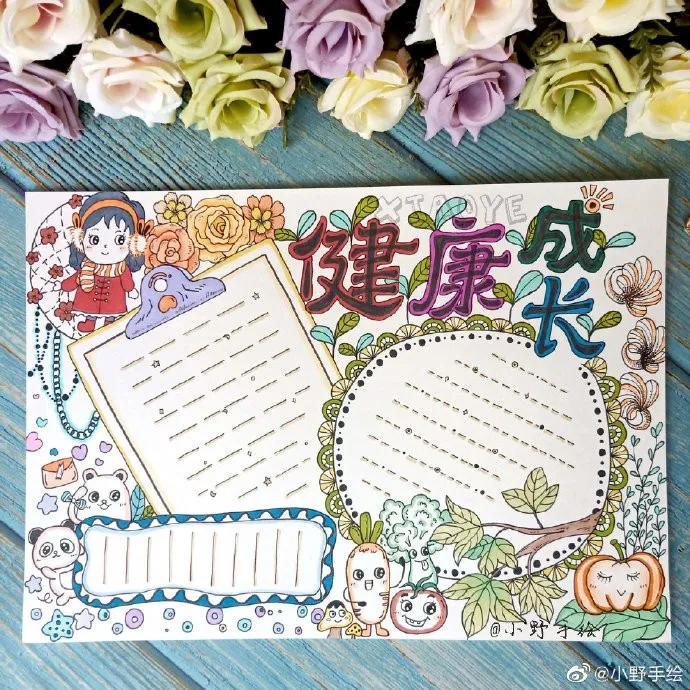 XIAOYE
健康成长
@小野手绘
@小野手绘